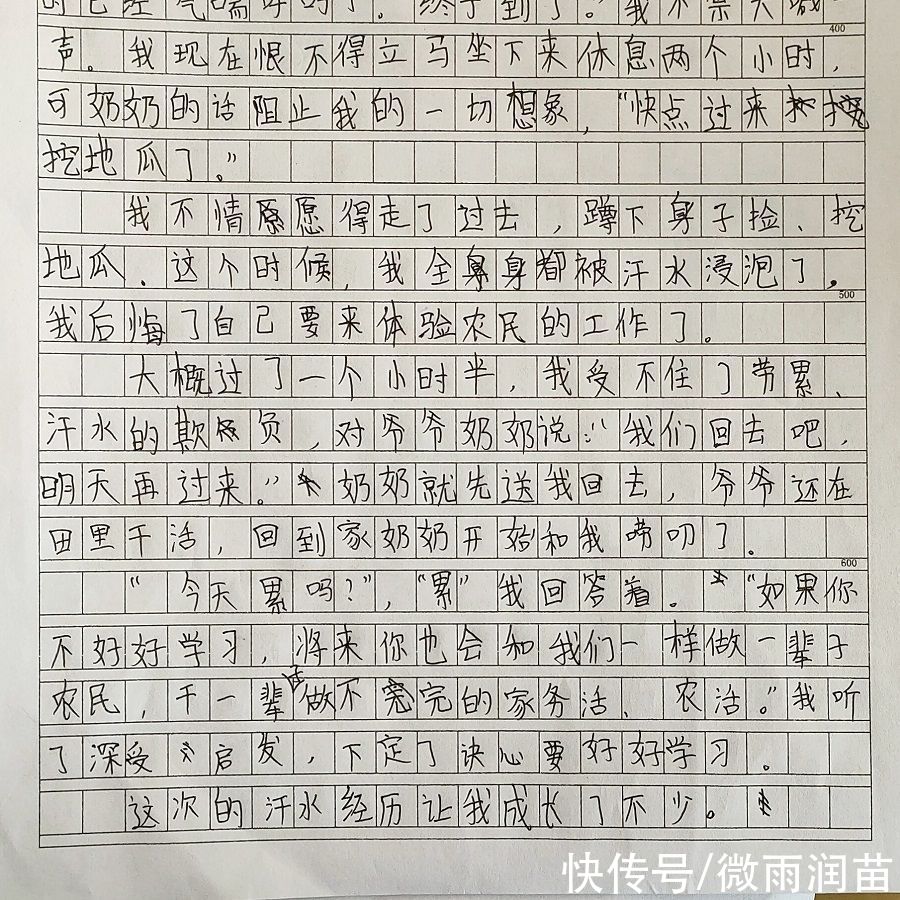 时已经气喘吁吁了。"终于到了。"我不禁大喊一
400
声。我现在恨不得立马坐下来休息两个小时,
可奶奶的话阻止我的一切想象,"快点过来挖
挖地瓜了。"
我不情愿愿得走了过去,蹲下身子捡、挖
地瓜、这个时候,我全身身都被汗水浸泡了,
500
我后悔了自己要来体验农民的工作了。
大概过了一个小时半,我受不住了劳累、
汗水的欺负,对爷爷奶奶说:"我们回去吧,
明天再过来。"奶奶就先送我回去,爷爷还在
田里干活,回到家奶奶开始和我唠叨了。
600
"今天累吗?","累"我回答着。"如果你
不好好学习,将来你也会和我们一样做一辈子
农民,干一辈做不完完的家务活、农活。"我听
了深受启发,下定了决心要好好学习。
这次的汗水经历让我成长了不少。
快传号/微雨润苗